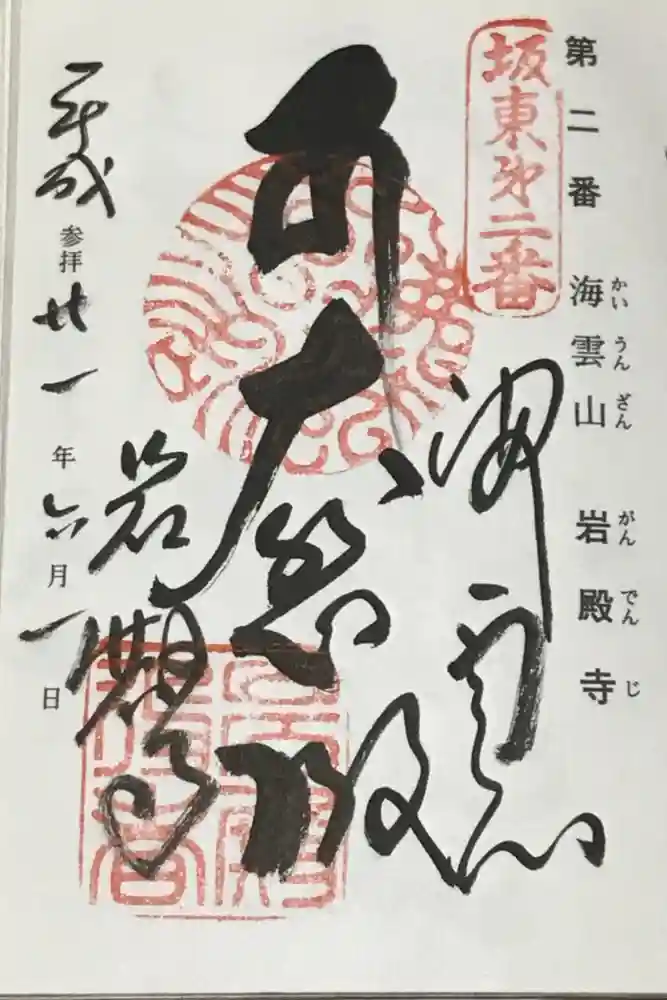 第二番 海雲山 岩殿寺
かいうんざん がんでんじ
坂東第二番
海雲山
大悲殿
岩殿寺
平成廿一年六月一日
参拝